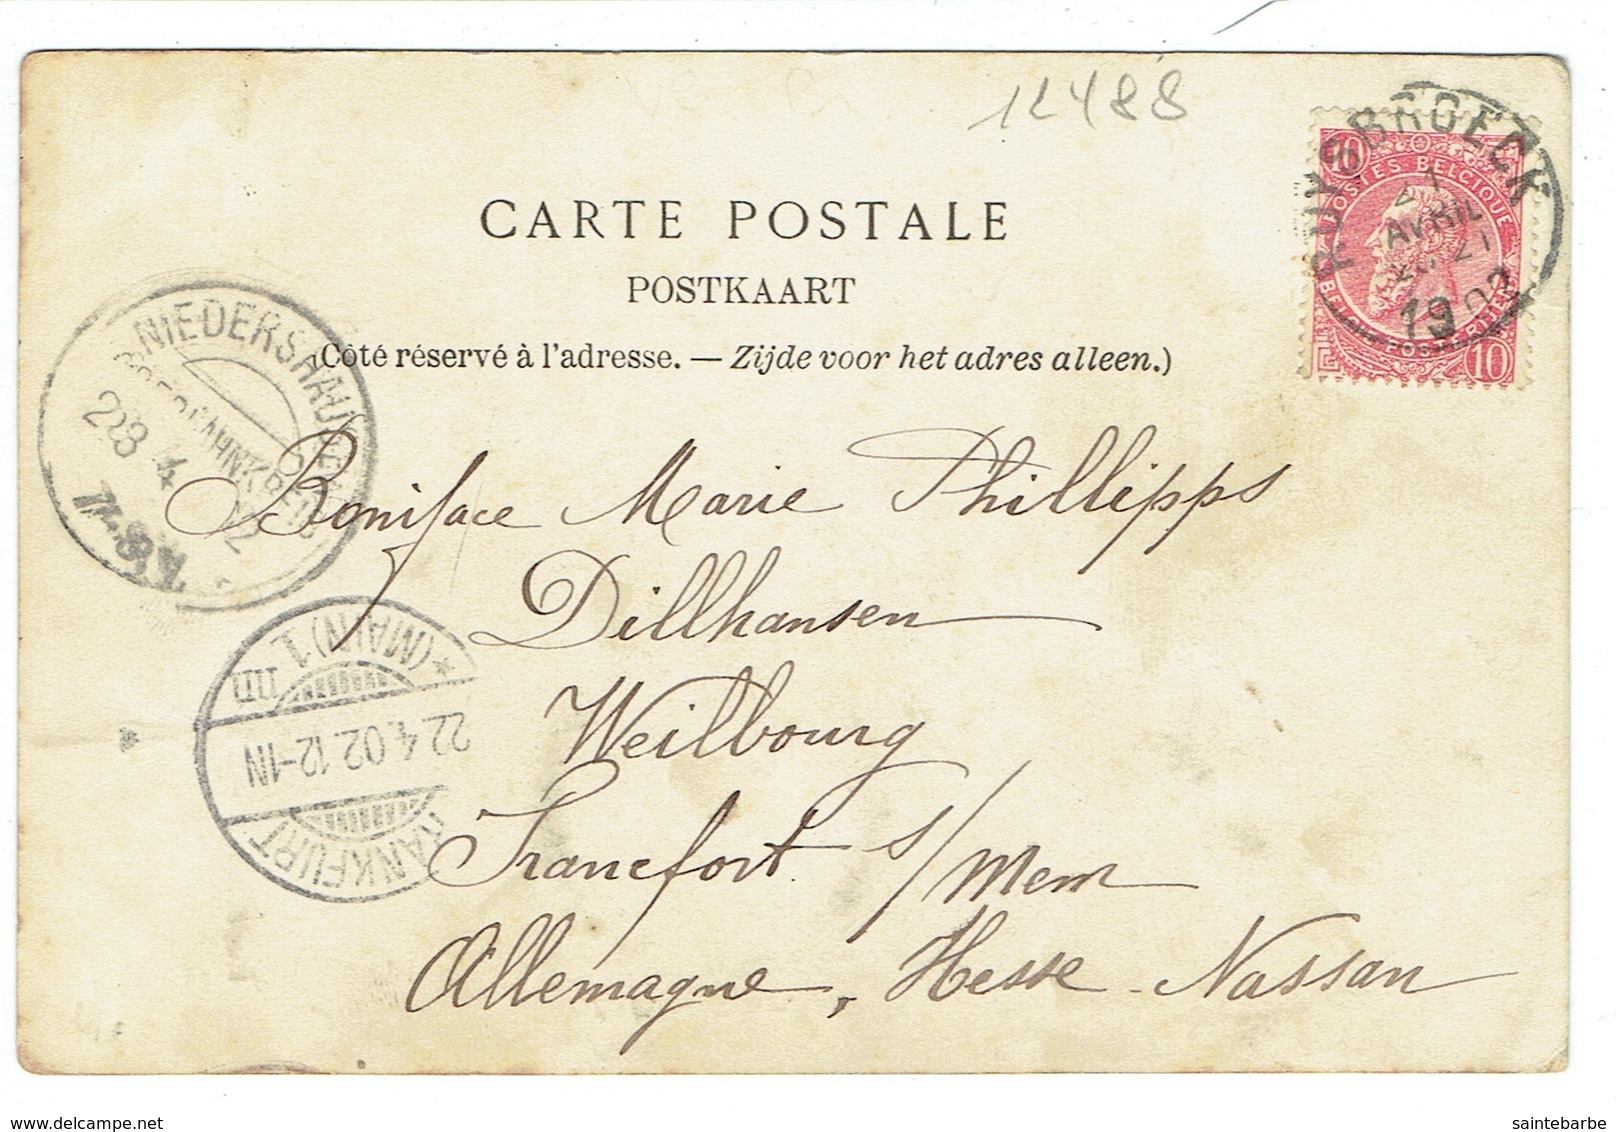 12488
CARTE POSTALE
POSTKAART
(Côté réservé à l'adresse. — Zijde voor het adres alleen.)
10 POSTES BELGIQUE
RUYSBROECK
21
AVRIL
1902
10
NIEDERSHAUSEN
7-8V
Boniface Marie Phillipps
Dillhausen
Weilbourg
Francfort s/Mem
Allemagne, Hesse-Nassau
*(MAIN) 1.
22.4.02.12-1N
FRANKFURT
saintebarbe